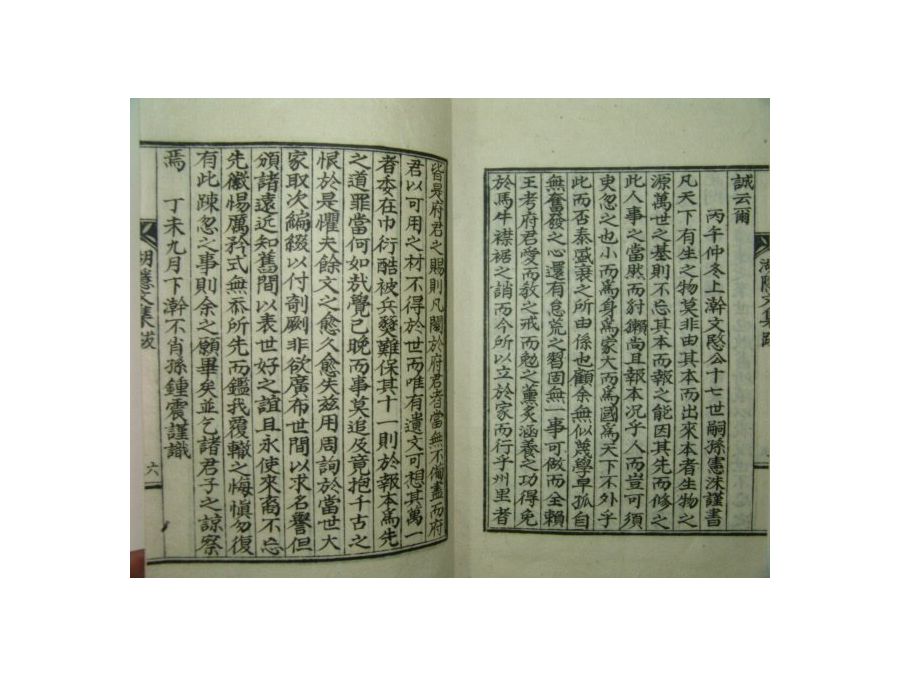 誠云爾
丙午仲冬上澣文愍公十七世嗣孫憲洙謹書
凡天下有生之物莫非由其本而出來本者生物之
源萬世之基則不忘其本而報之能因其先而修之
此人事之當然而豺獺尚且報本况乎人而豈可須
臾忽之也小而爲身爲家大而爲國爲天下不外乎
此而否泰盛衰之所由係也顧余無似蔑學早孤自
無奮發之心還有怠荒之習固無一事可做而全賴
王考府君愛而敎之戒而勉之薰炙涵養之功得免
於馬牛襟裾之誚而今所以立於家而行乎州里者
皆是府君之賜則凡關於府君者當無不備盡而府
君以可用之材不得於世而唯有遺文可想其萬一
者夲在巾衍酷被兵燹難保其十一則於報本爲先
之道罪當何如哉覺已晩而事莫追及竟抱千古之
恨於是懼夫餘文之愈久愈失玆用周詢於當世大
家取次編綴以付剞劂非欲廣布世間以求名譽但
頒諸遠近知舊間以表世好之誼且永使來裔不忘
先徽惕厲矜式無忝所先而鑑我覆轍之悔愼勿復
有此踈忽之事則余之願畢矣並乞諸君子之諒察
焉 丁未九月下澣不肖孫鍾震謹識
湖隱文集跋 六